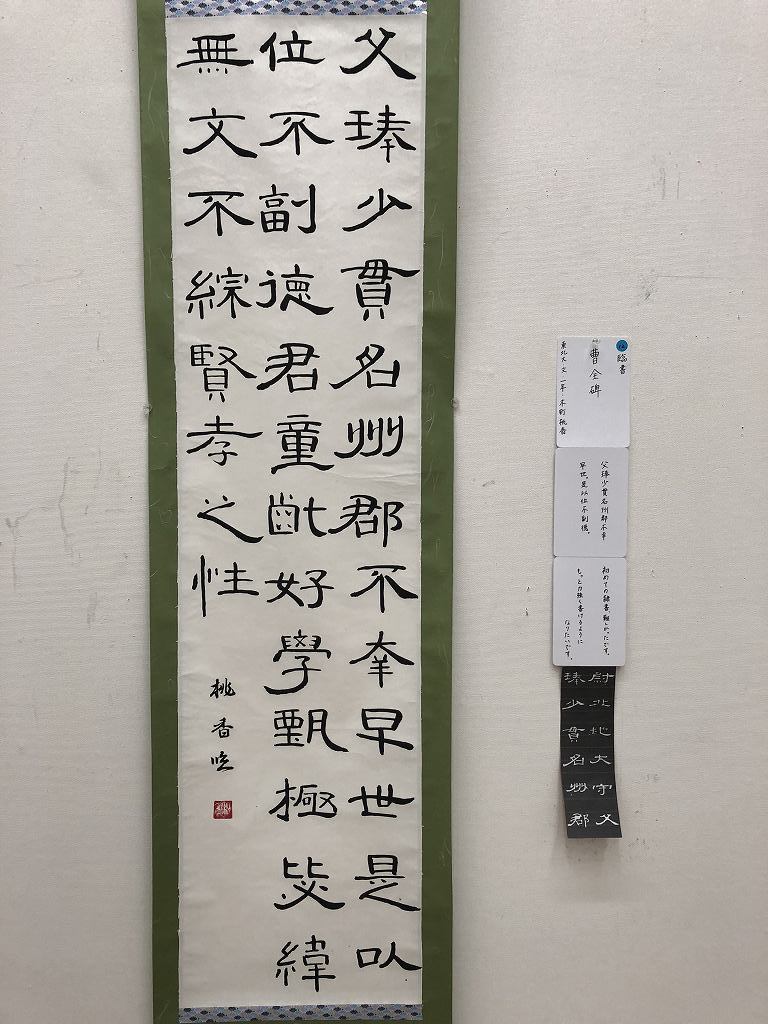 父琫少貫名州郡不幸早世是以
位不副德君童齔好學甄極毖緯
無文不綜賢孝之性
桃香臨
臨書
曹全碑
東北大 文 一年 桃香
父琫少貫名州郡不幸
早世。是以位不副德。
初めての隷書、難しかったです。
もっと力強く書けるように
なりたいです。
尉北地大守父
琫少貫名州郡